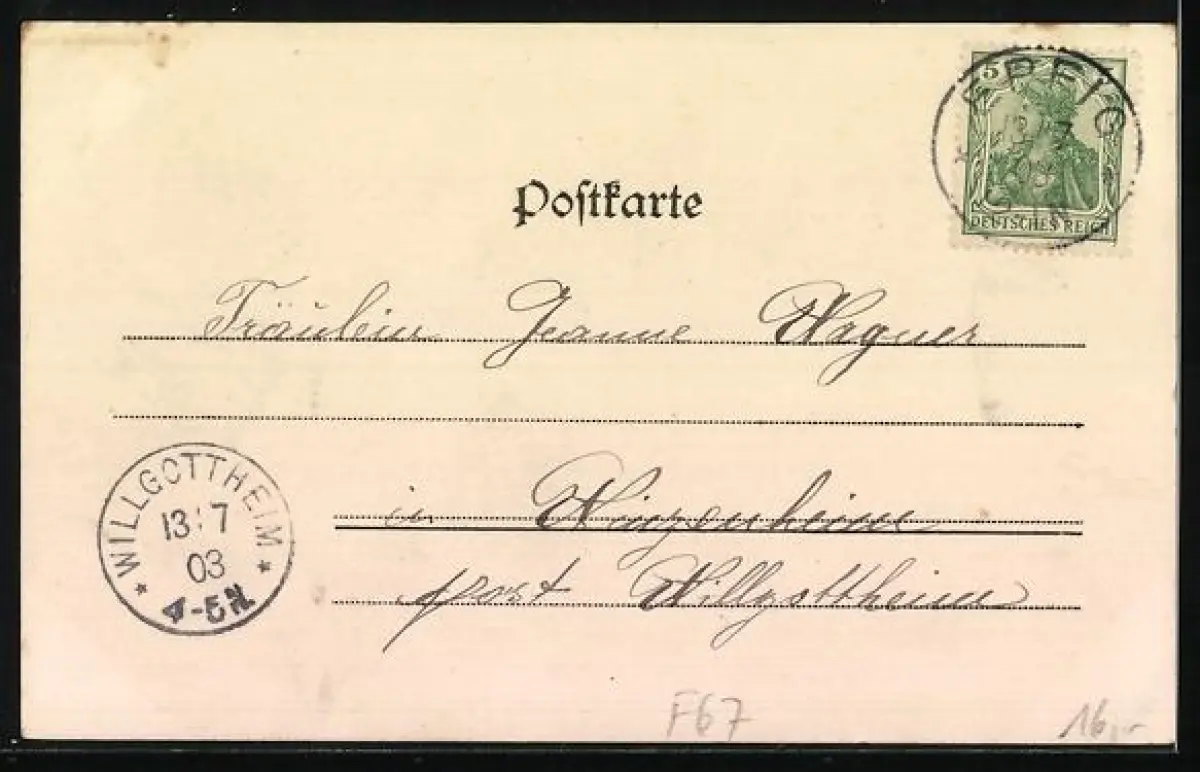 5
DEUTSCHES REICH
EPFIG
Postkarte
Fräulein Jeanne Wagner
in Winzenheim
post Willgottheim
WILLGOTTHEIM
13:7
03
4-5N.
F67
16,-